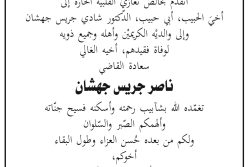 أتقدّم بخالص تعازيّ القلبية الحارّة إلى
أخيَ الحبيب، أبي حبيب، الدّكتور شادي جريس جهشان
وإلى والديْه الكريميْن وأهله وجميع ذويه
لوفاة فقيدهم، أخيه الغالي
سعادة القاضي
ناصر جريس جهشان
تغمّده الله بشآبيب رحمته وأسكنه فسيح جنّاته
وألهمكم الصّبر والسّلوان
ولكم من بعده حُسن العزاء وطول البقاء
أخوكم،